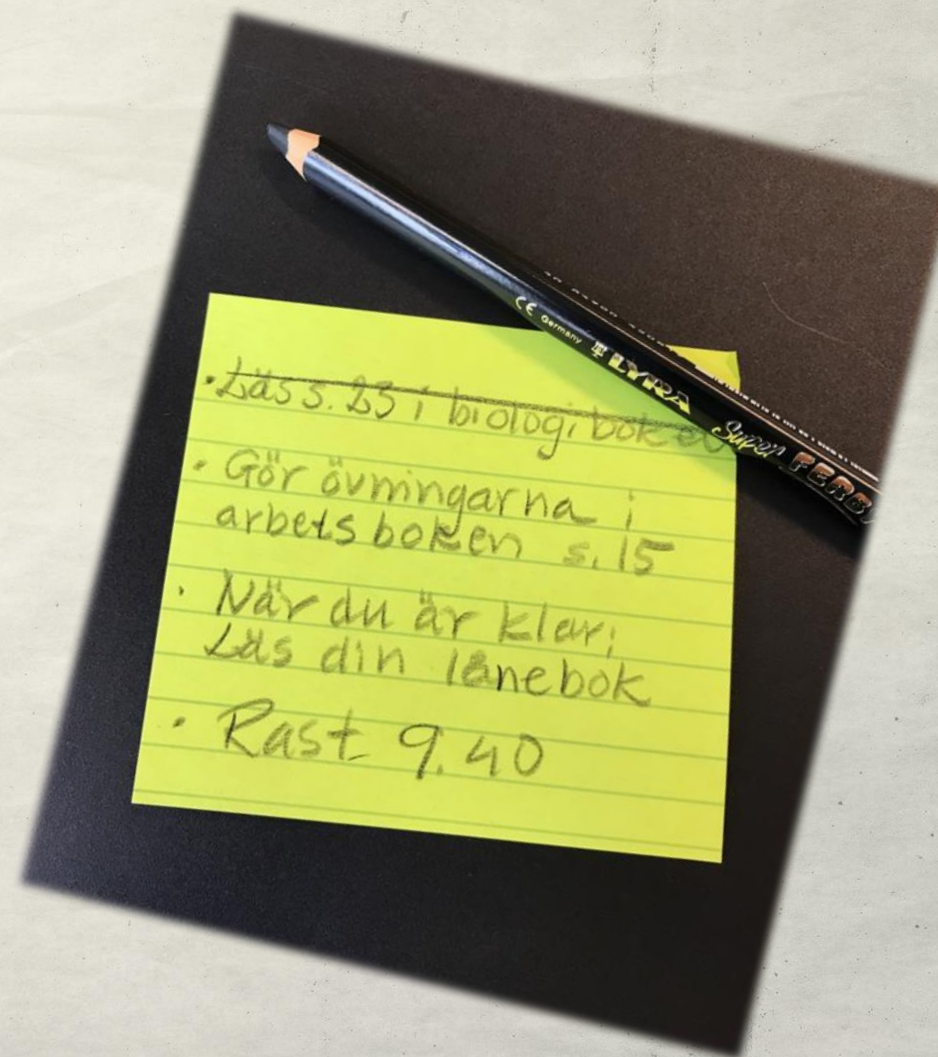 CE Germany LYRA Super FERB
• Läs s. 23 i biologiboken
• Gör övningarna i
arbetsboken s. 15
• När du är klar;
Läs din lånebok
• Rast 9.40